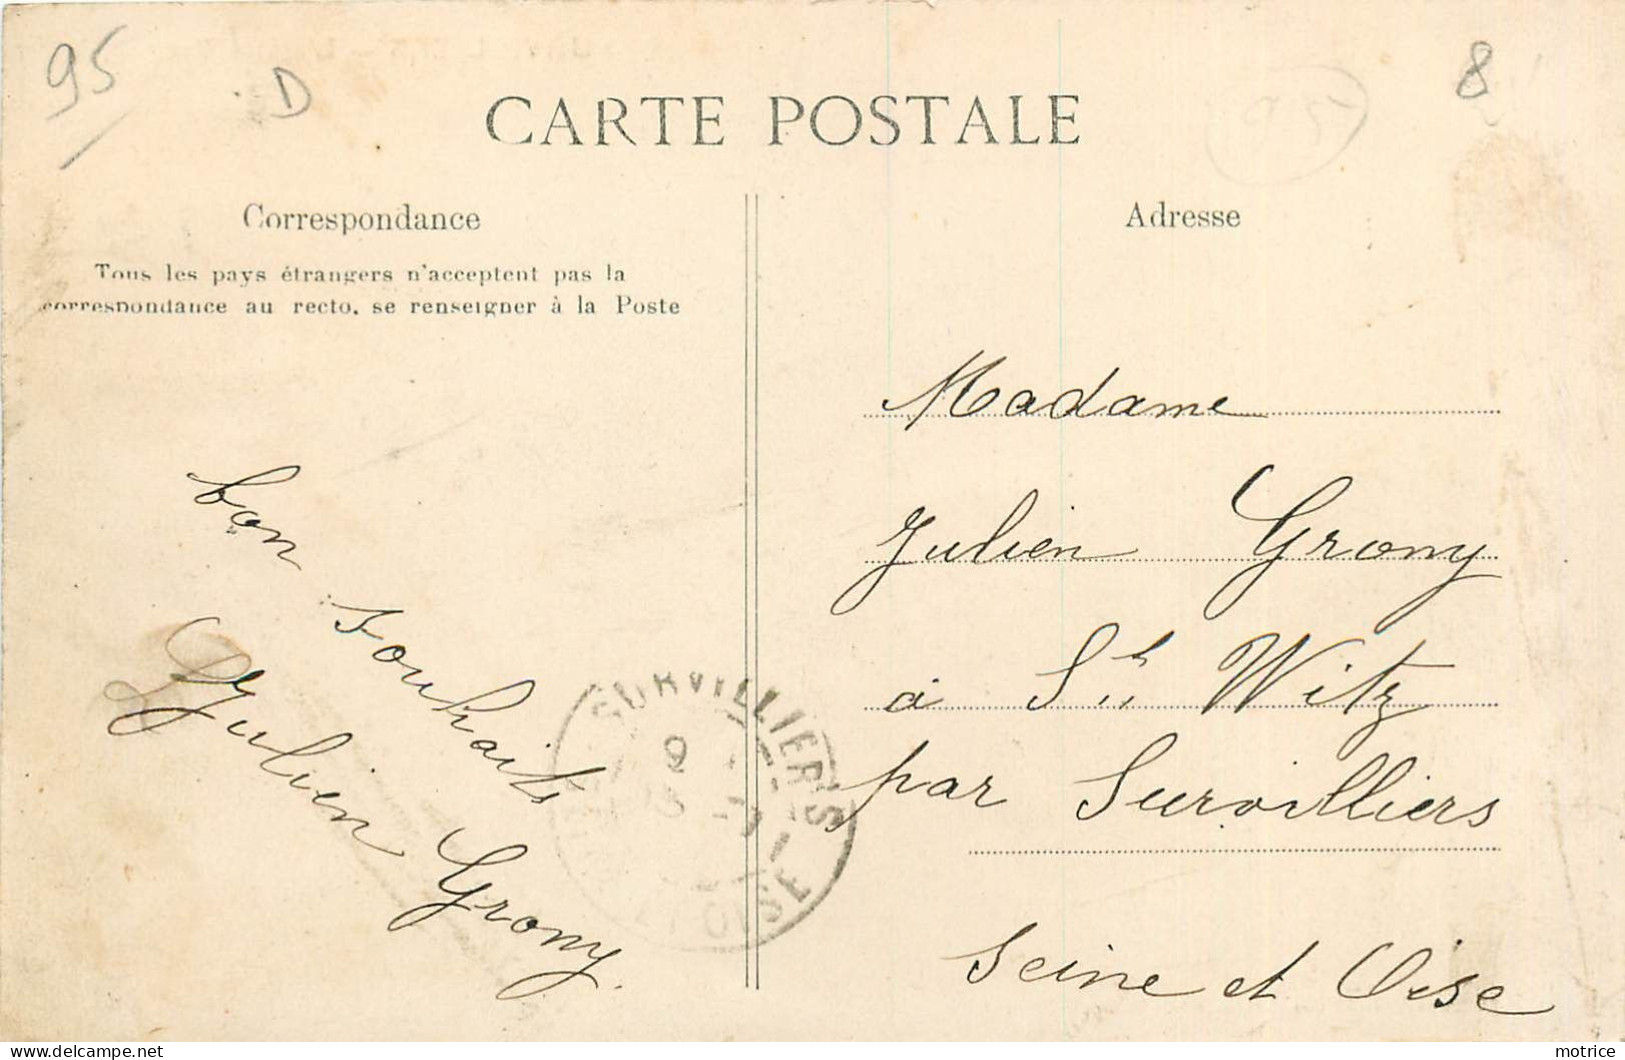 95
D
8
95
CARTE POSTALE
Correspondance
Tous les pays étrangers n'acceptent pas la
correspondance au recto, se renseigner à la Poste
bon souhaits
Julien Grony.
Adresse
Madame
Julien Grony
à St Witz
par Survilliers
Seine et Oise
SURVILLIERS
OISE
motrice